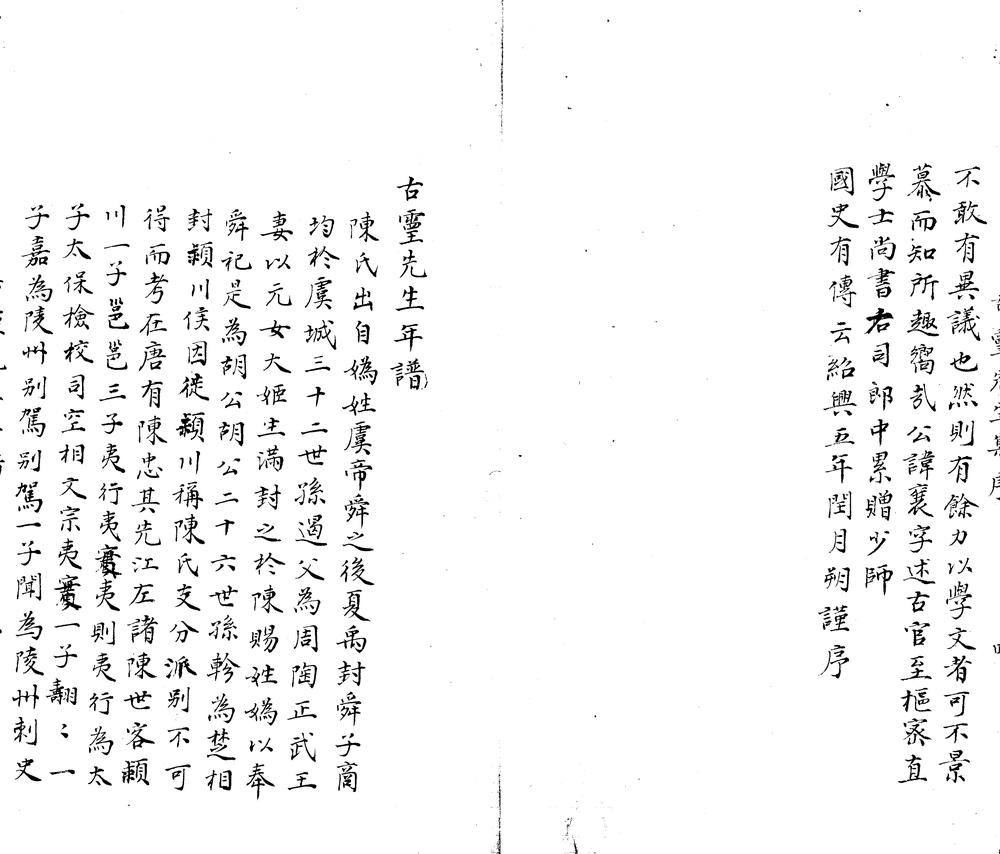 不敢有異議也然則有餘力以學文者可不景
慕而知所趣嚮哉公諱襄字述古官至樞密直
學士尚書右司郎中累贈少師
國史有傳云紹興五年閏月朔謹序
古靈先生年譜
陳氏出自媯姓虞帝舜之後夏禹封舜子商
均於虞城三十二世孫遏父為周陶正武王
妻以元女大姬生滿封之於陳賜姓媯以奉
舜祀是為胡公胡公二十六世孫軫為楚相
封潁川侯因徙潁川稱陳氏支分派別不可
得而考在唐有陳忠其先江左諸陳世客潁
川一子邕邕三子夷行夷賓夷則夷行為太
子太保檢校司空相文宗夷賓一子翿〻一
子嘉為陵州别駕别駕一子聞為陵州刺史